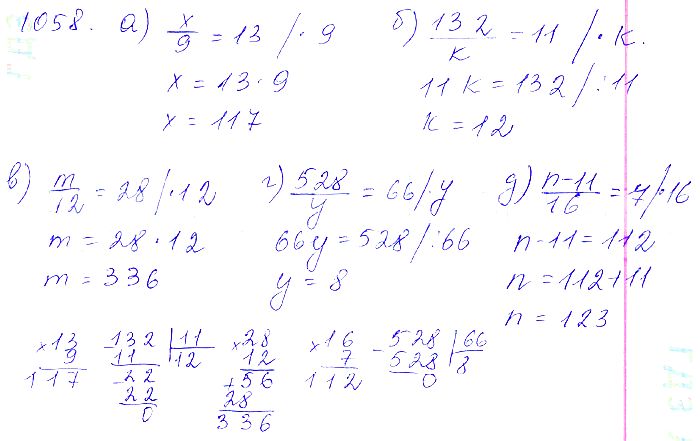 1058. а) x/9 = 13 /· 9 б) 132/k = 11 /· k.
x = 13 · 9 11k = 132 /: 11
x = 117 k = 12
в) m/12 = 28 /· 12 г) 528/y = 66 /· y д) n-11/16 = 7 /· 16
m = 28 · 12 66y = 528 /: 66 n-11 = 112
m = 336 y = 8 n = 112+11
n = 123
×13 -132 |11 ×28 ×16 -528 |66
9 11 12 12 7 528 8
117 -22 +56 112 0
22 28
0 336